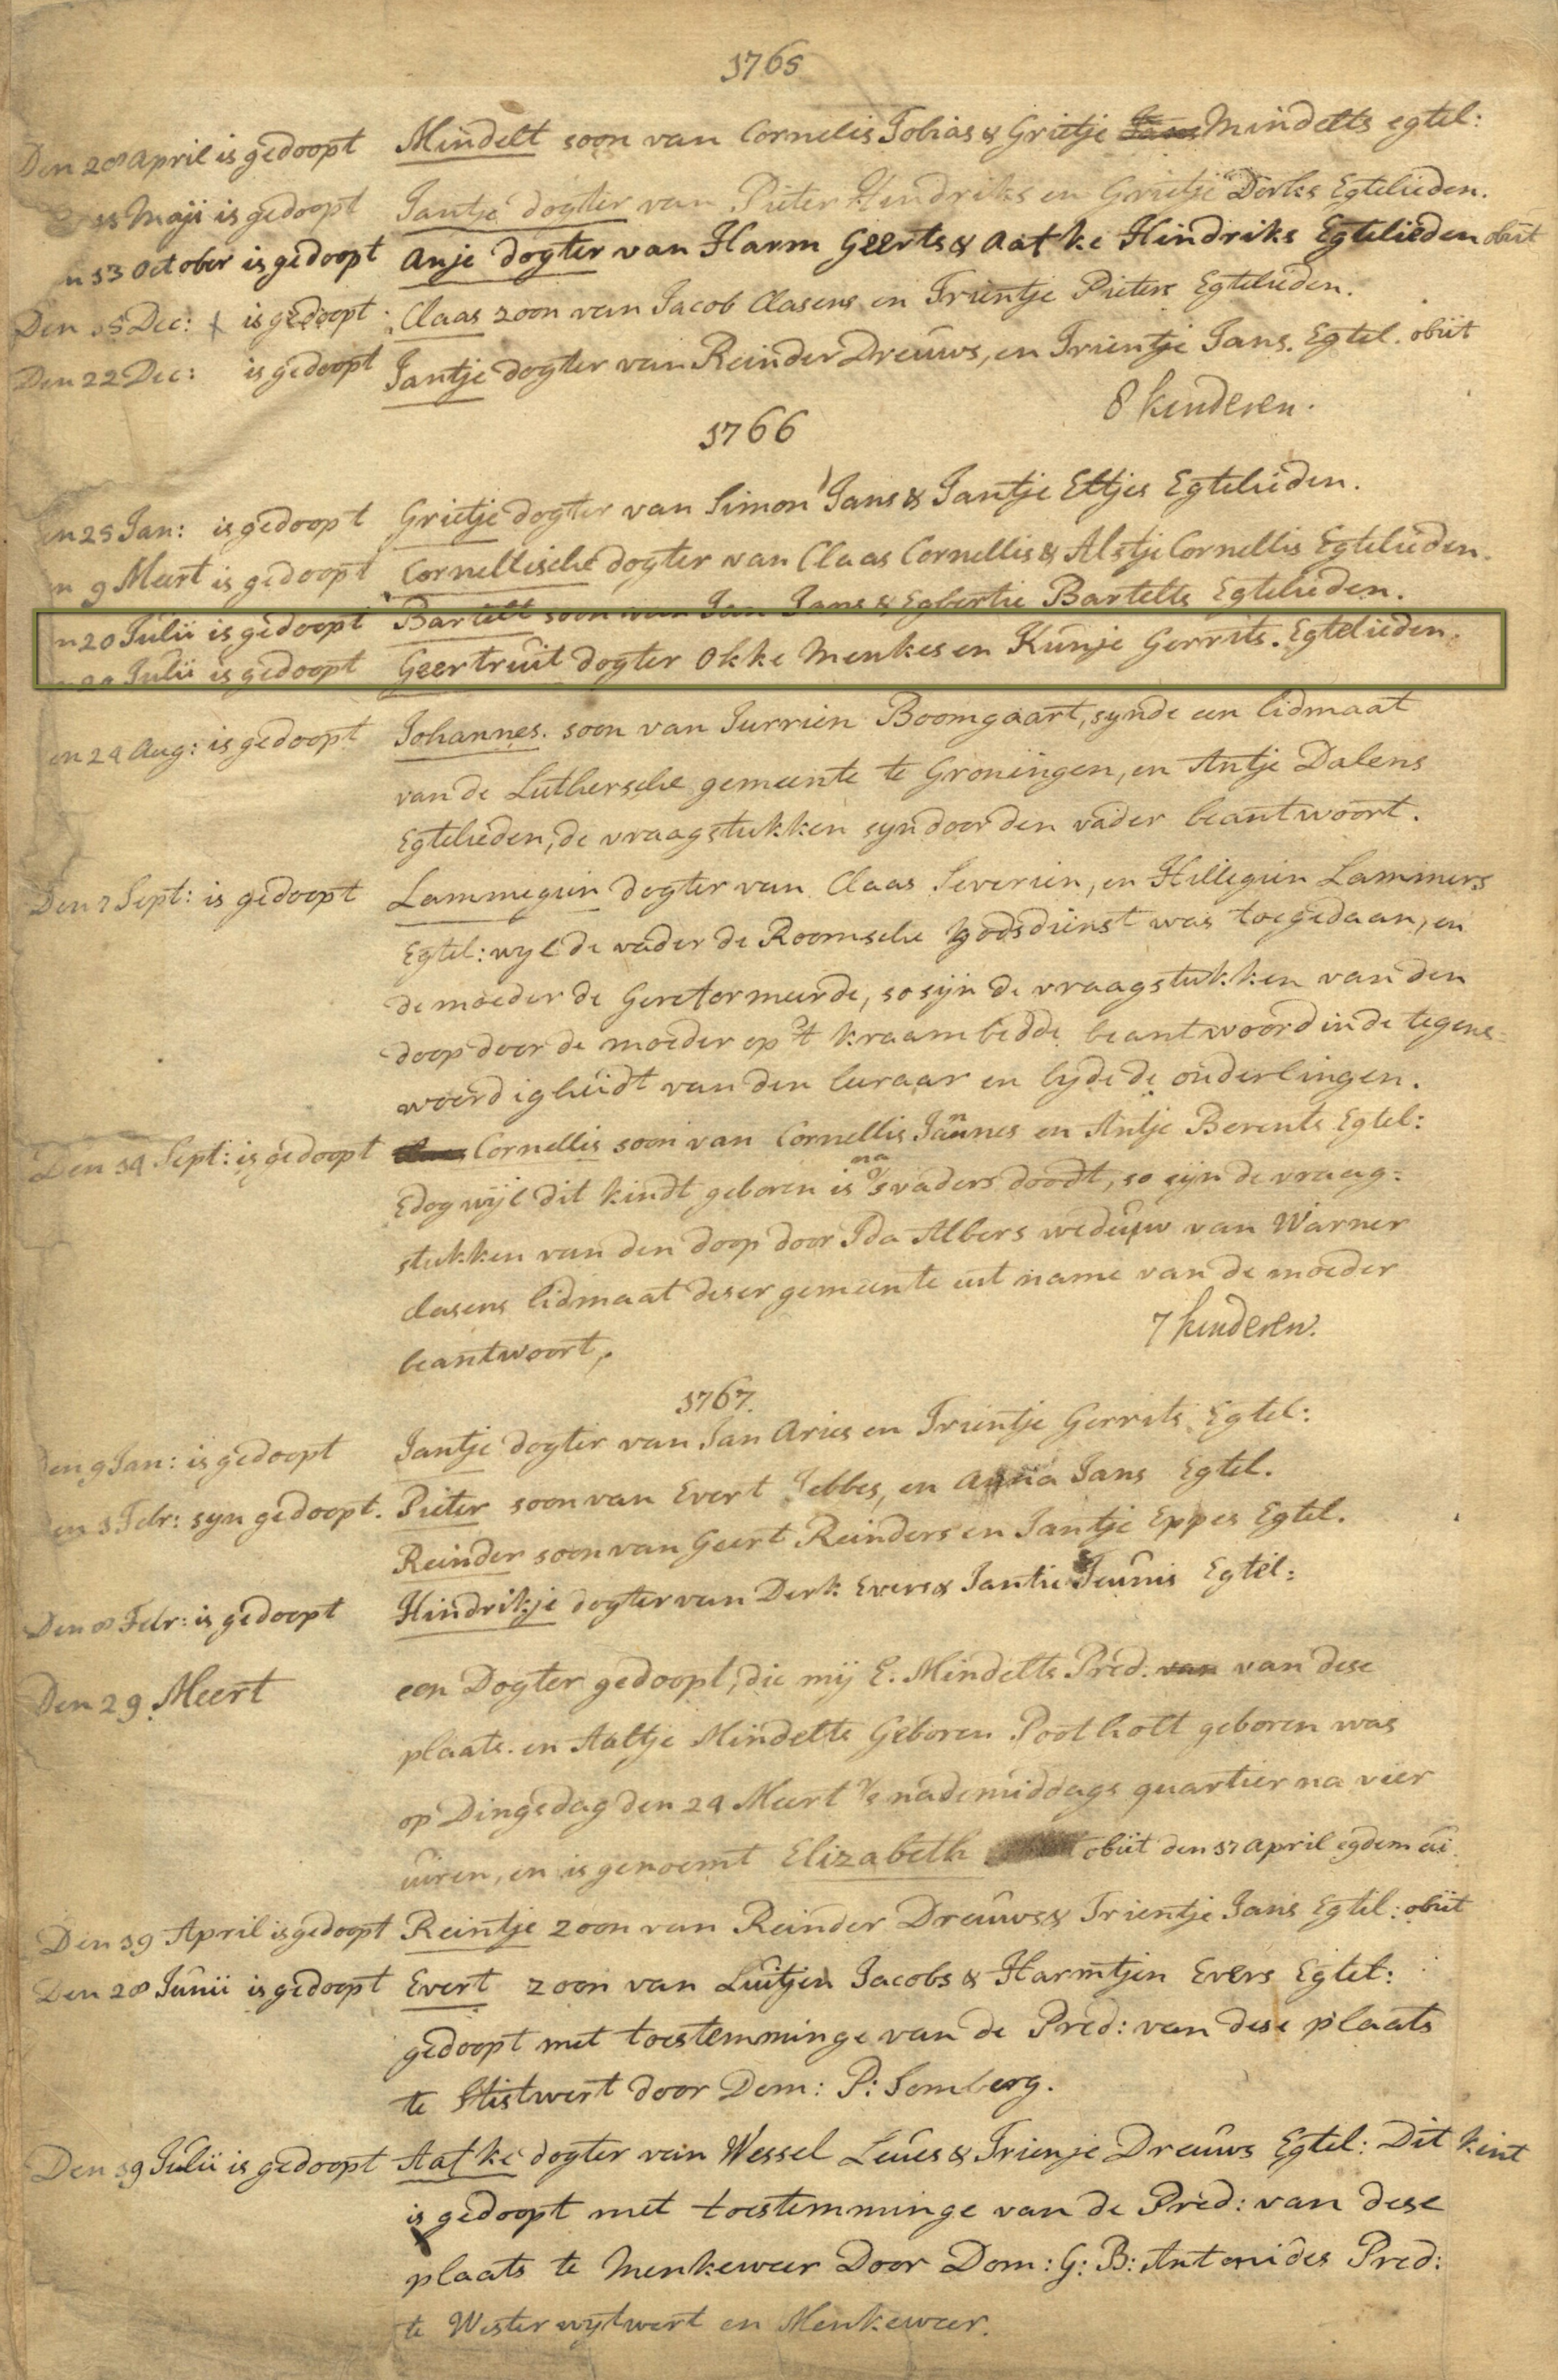 1765
Den 28 April is gedoopt Mindelt soon van Cornelis Tobias & Grietje Jans Mindelts egtel:
15 Maji is gedoopt Jantje dogter van Pieter Hendriks en Grietje Derks Egtelieden.
n 13 October is gedoopt Anje dogter van Harm Geerts & Aafke Hindriks Egtelieden obiit
Den 15 Dec: is gedoopt Claas zoon van Jacob Clasens en Trientje Pieters Egtelieden.
Den 22 Dec: is gedoopt Jantje dogter van Reinder Dreuws, en Trientje Jans. Egtel. obiit
8 kinderen.
1766
en 25 Jan: is gedoopt Grietje dogter van Simon Jans & Jantje Eltjes Egtelieden.
n 9 Meert is gedoopt Cornellische dogter van Claas Cornellis & Alstje Cornellis Egtelieden.
n 20 Julii is gedoopt Bartelt soon van Jan Jans & Egbertie Bartelts Egtelieden.
Julii is gedoopt Geertruit dogter Okke Menkes en Kunje Gerrits. Egtelieden.
en 24 Aug: is gedoopt Johannes. soon van Jurrien Boomgaart, synde een lidmaat
van de Luthersche gemeente te Groningen, en Antje Dalens
Egtelieden, de vraagstukken syn door den vader beantwoort.
Den 7 Sept: is gedoopt Lammegien dogter van Claas Severien, en Hillegien Lammers
Egtel: wyl de vader de Roomsche godsdienst was toegedaan, en
de moeder de Gereformeerde, so sijn de vraagstukken van den
doop door de moeder op 't kraambedde beantwoord in de tegens-
woordigheidt van den leraar en byde de ouderlingen.
Den 14 Sept: is gedoopt Cornellis soon van Cornellis Jannes en Antje Berents Egtel:
Edog wijl dit kindt geboren is na 's vaders doodt, so sijn de vraag=
stukken van den doop door Ida Albers weduw van Warner
Clasens lidmaat deser gemeente uit name van de moeder
beantwoort.
7 kinderen.
1767.
Den 9 Jan: is gedoopt Jantje dogter van Jan Aries en Trientje Gerrits Egtel:
en 1 Febr: syn gedoopt. Pieter soon van Evert Jebbes, en Anna Jans Egtel.
Reinder soon van Geert Reinders en Jantje Eppes Egtel.
Den 8 Febr: is gedoopt Hindrikje dogter van Derk Evers & Jantie Teunis Egtel:
Den 29 Meert een Dogter gedoopt, die mij E. Mindelts Pred. van van dese
plaats. en Aaltje Mindelts Geboren Pootholt geboren was
op Dingsdag den 24 Meert 's nademiddags quartier na vier
uiren, en is genoemt Elizabeth obiit den 17 April egdem
Den 19 April is gedoopt Reintje zoon van Reinder Dreuws & Trientje Jans Egtel: obiit
Den 28 Junii is gedoopt Evert zoon van Luitjen Jacobs & Harmtjen Evers Egtel:
gedoopt met toestemminge van de Pred: van dese plaats
te Stistwert door Dom: P: Somberg.
Den 19 Julii is gedoopt Aafke dogter van Wessel Leues & Trienje Dreuws Egtel: Dit kint
is gedoopt met toestemminge van de Pred: van dese
plaats te Menkeweer Door Dom: G: B: Antonides Pred:
te Westerwytwert en Menkeweer.